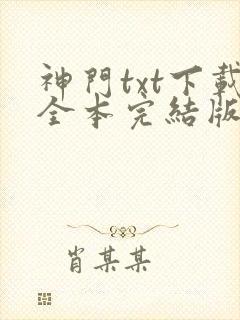 神門txt下載
全本完結版
肖某某